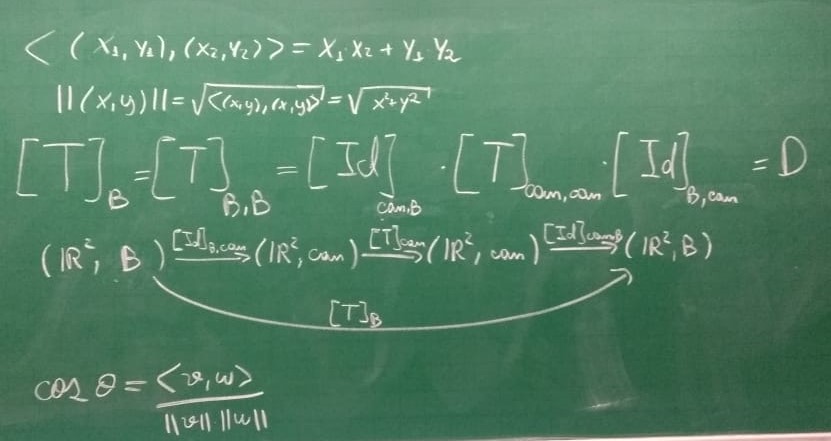 < (x₁, y₁), (x₂, y₂) > = x₁·x₂ + y₁·y₂
||(x,y)|| = √<(x,y),(x,y)> = √x²+y²
[T]_B = [T]_B,B = [Id]_can,B · [T]_can,can · [Id]_B,can = D
(ℝ², B) →[Id]_B,can (ℝ², can) →[T]_can (ℝ², can) →[Id]_can,B (ℝ², B)
[T]_B
cos θ = <v,w> / ||v||·||w||